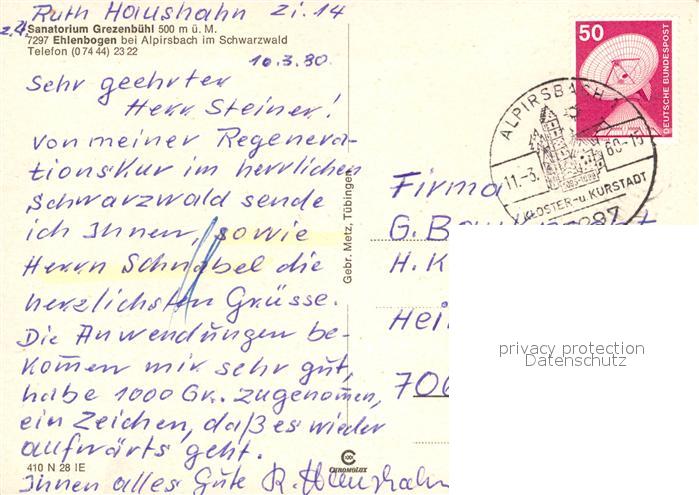 Ruth Haushahn Zi. 14
z. Zt.
Sanatorium Grezenbühl 500 m ü. M.
7297 Ehlenbogen bei Alpirsbach im Schwarzwald
Telefon (0 74 44) 23 22
10.3.80.
Sehr geehrter
Herr Steiner!
von meiner Regenera-
tionskur im herrlichen
Schwarzwald sende
ich Ihnen, sowie
Herrn Schnabel die
herzlichsten Grüsse.
Die Anwendungen be-
kommen mir sehr gut,
habe 1000 Gr. zugenommen,
ein Zeichen, daß es wieder
aufwärts geht.
Ihnen alles Gute R. Haushahn
410 N 28 IE
Gebr. Metz, Tübingen
CHROMOLUX
50
DEUTSCHE BUNDESPOST
ALPIRSBACH 1
11.-3.
60-15
KLOSTER-u. KURSTADT
7297
Firma
G.
H. K
Hei
706
privacy protection
Datenschutz